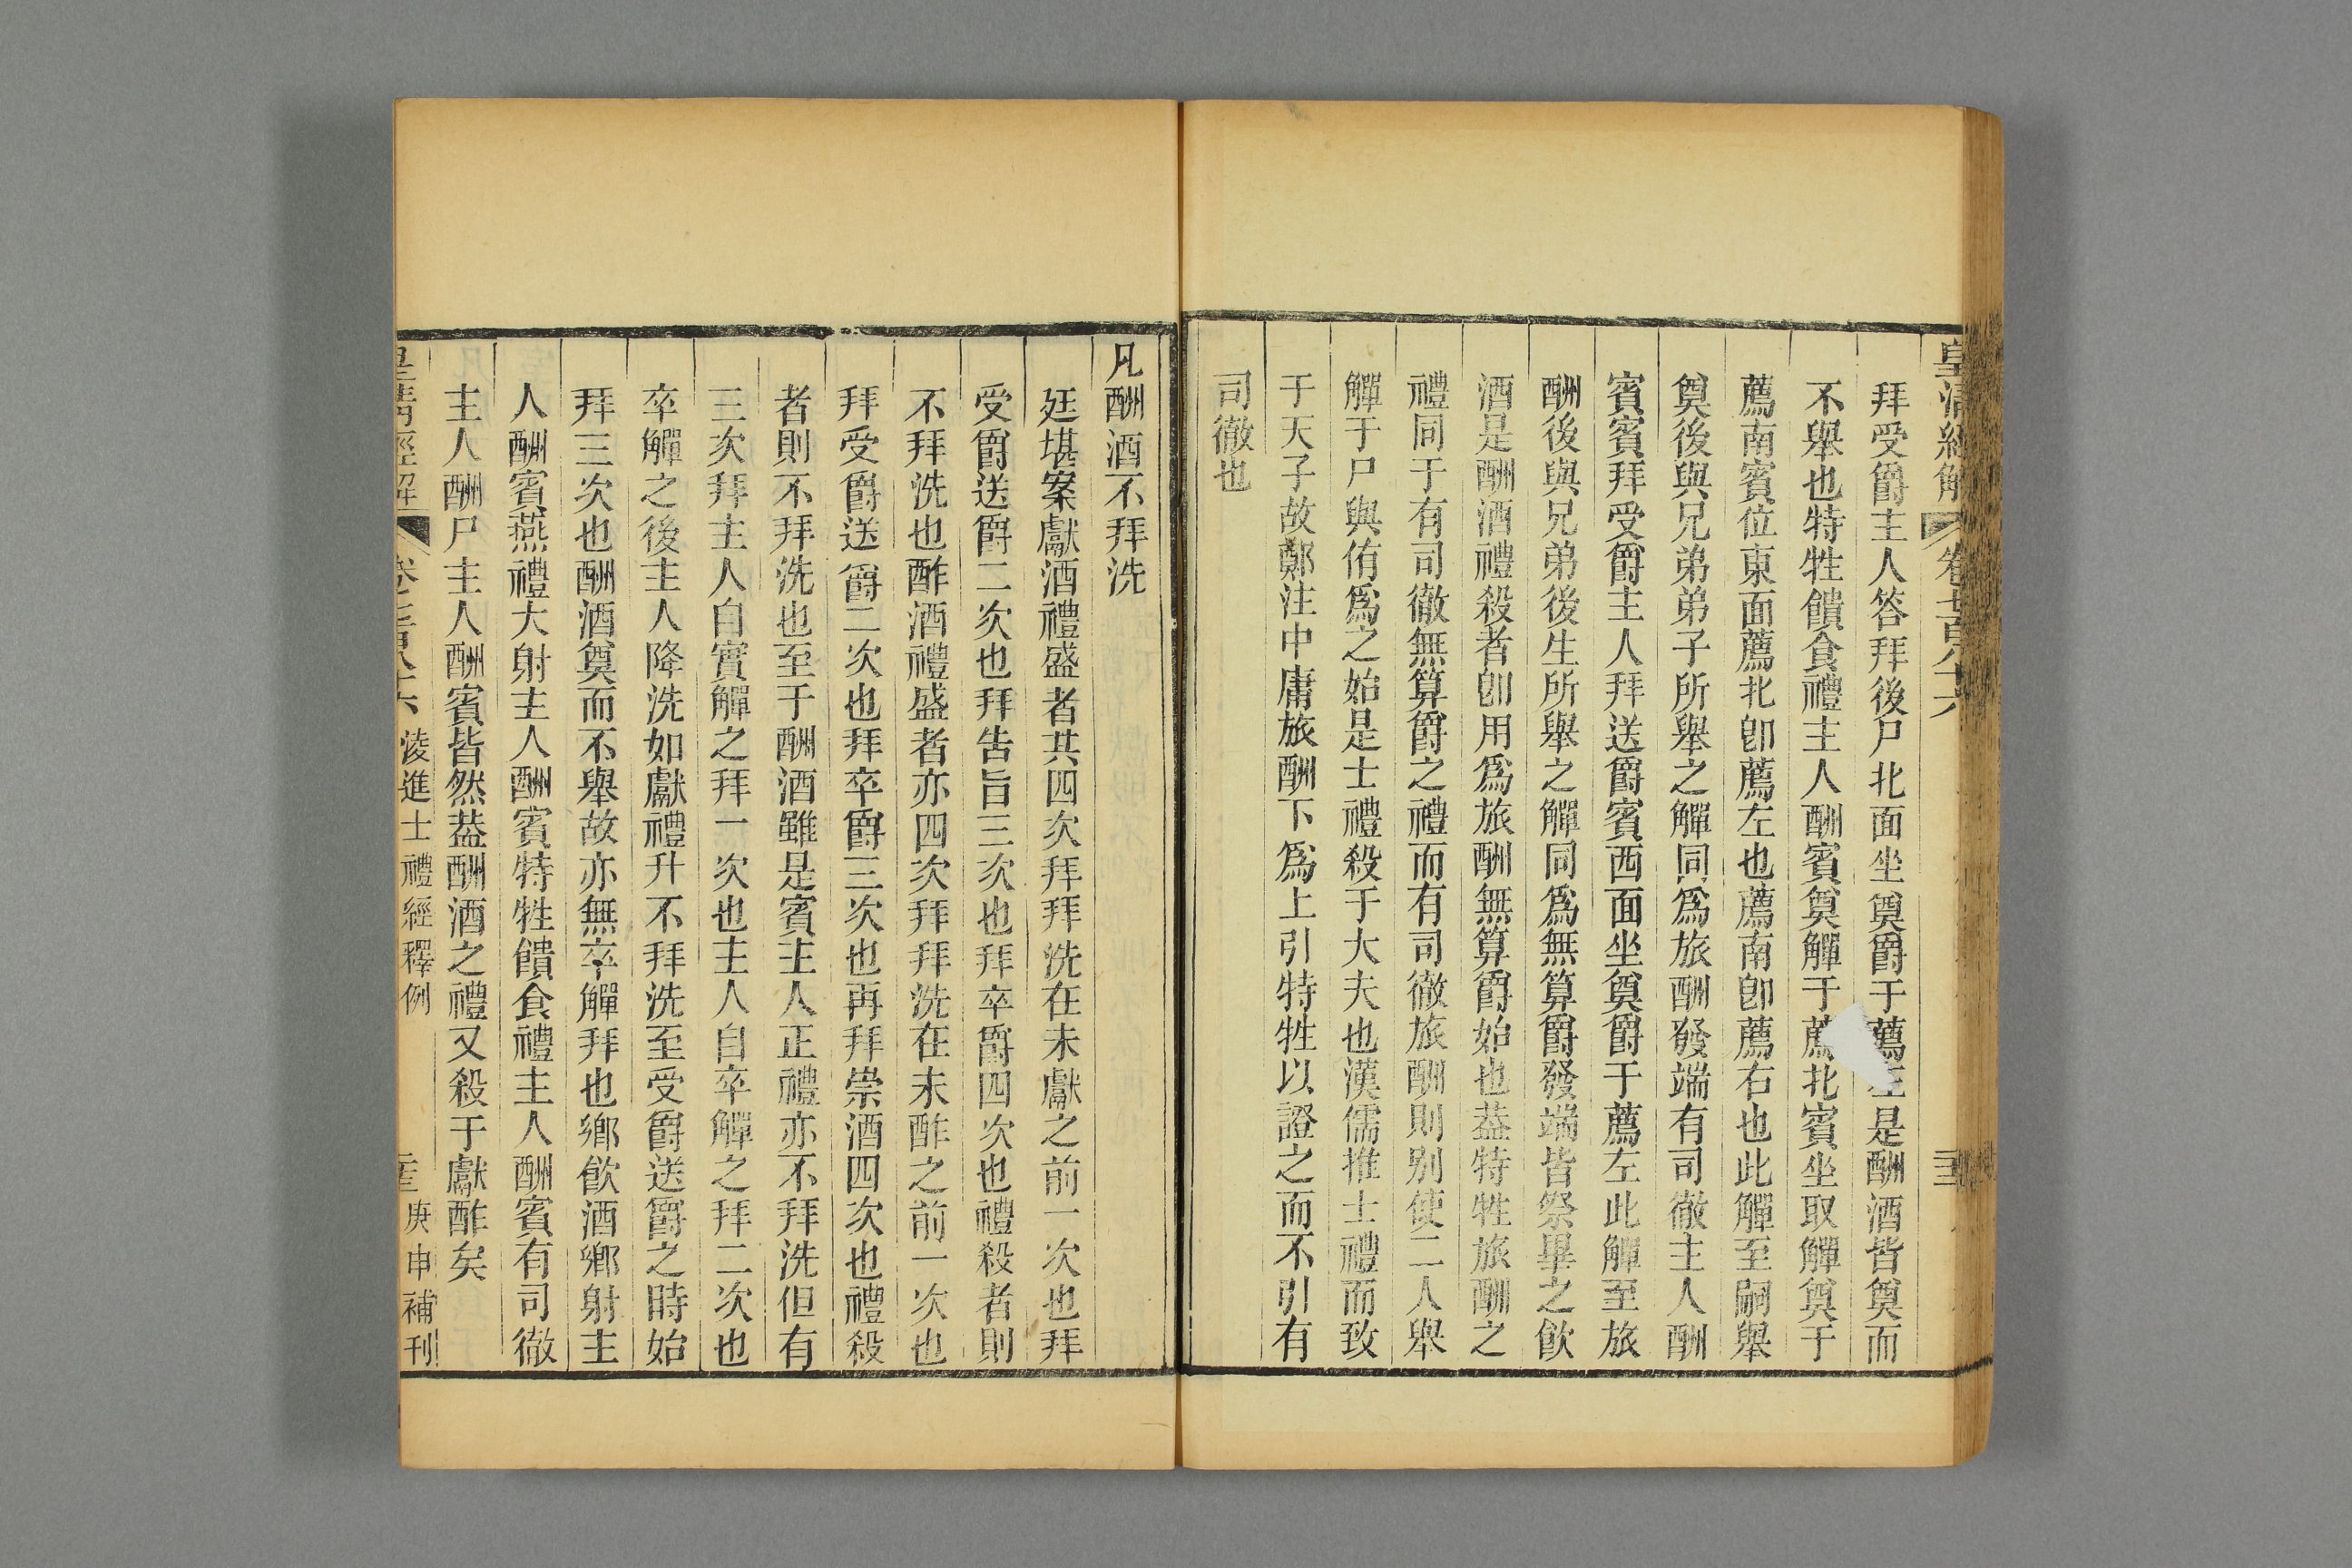 皇清經解 卷七百八十六
拜受爵主人答拜後尸北面坐奠爵于薦左是酬酒皆奠而
不舉也特牲饋食禮主人酬賓奠觶于薦北賓坐取觶奠于
薦南賓位東面薦北卽薦左也薦南卽薦右也此觶至嗣舉
奠後與兄弟弟子所舉之觶同爲旅酬發端有司徹主人酬
賓賓拜受爵主人拜送爵賓西面坐奠爵于薦左此觶至旅
酬後與兄弟後生所舉之觶同爲無算爵發端皆祭畢之飮
酒是酬酒禮殺者卽用爲旅酬無算爵始也葢特牲旅酬之
禮同于有司徹無算爵之禮而有司徹旅酬則别使二人舉
觶于尸與侑爲之始是士禮殺于大夫也漢儒推士禮而致
于天子故鄭注中庸旅酬下爲上引特牲以證之而不引有
司徹也
凡酬酒不拜洗
廷堪案獻酒禮盛者共四次拜拜洗在未獻之前一次也拜
受爵送爵二次也拜告旨三次也拜卒爵四次也禮殺者則
不拜洗也酢酒禮盛者亦四次拜拜洗在未酢之前一次也
拜受爵送爵二次也拜卒爵三次也再拜崇酒四次也禮殺
者則不拜洗也至于酬酒雖是賓主人正禮亦不拜洗但有
三次拜主人自實觶之拜一次也主人自卒觶之拜二次也
卒觶之後主人降洗如獻禮升不拜洗至受爵送爵之時始
拜三次也酬酒奠而不舉故亦無卒觶拜也鄉飮酒鄉射主
人酬賓燕禮大射主人酬賓特牲饋食禮主人酬賓有司徹
主人酬尸主人酬賓皆然葢酬酒之禮又殺于獻酢矣
皇清經解 卷七百八十六 淩進士禮經釋例 庚申補刊